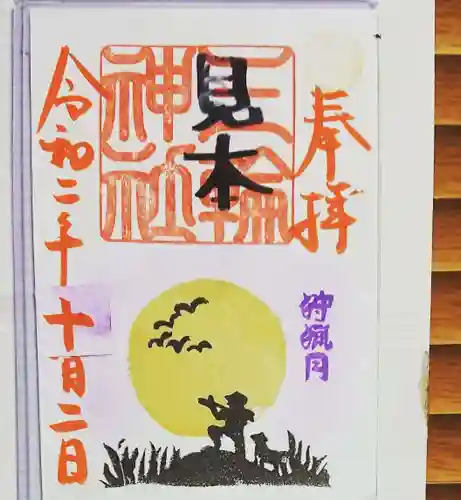 奉拝
三輪
神社
見本
狩猟月
令和二年
十月二日